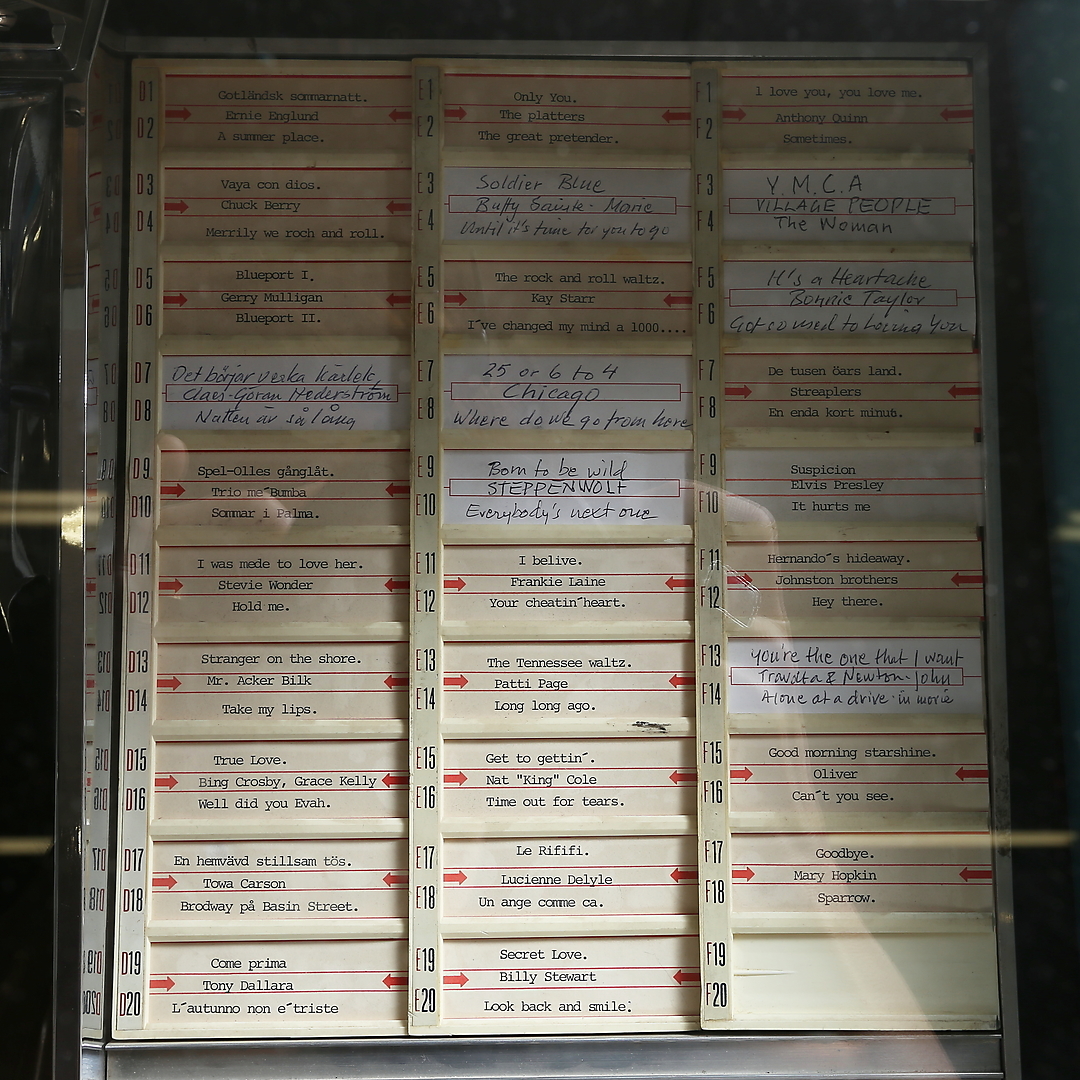 D1
D2
Gotländsk sommarnatt.
Ernie Englund
A summer place.
D3
D4
Vaya con dios.
Chuck Berry
Merrily we roch and roll.
D5
D6
Blueport I.
Gerry Mulligan
Blueport II.
D7
D8
Det börjar verka kärlek,
Claes-Göran Hederström
Natten är så lång
D9
D10
Spel-Olles gånglåt.
Trio me´Bumba
Sommar i Palma.
D11
D12
I was mede to love her.
Stevie Wonder
Hold me.
D13
D14
Stranger on the shore.
Mr. Acker Bilk
Take my lips.
D15
D16
True Love.
Bing Crosby, Grace Kelly
Well did you Evah.
D17
D18
En hemvävd stillsam tös.
Towa Carson
Brodway på Basin Street.
D19
D20
Come prima
Tony Dallara
L´autunno non e´triste
E1
E2
Only You.
The platters
The great pretender.
E3
E4
Soldier Blue
Buffy Sainte-Marie
Until it's time for you to go
E5
E6
The rock and roll waltz.
Kay Starr
I´ve changed my mind a 1000....
E7
E8
25 or 6 to 4
Chicago
Where do we go from here
E9
E10
Born to be wild
STEPPENWOLF
Everybody's next one
E11
E12
I belive.
Frankie Laine
Your cheatin´heart.
E13
E14
The Tennessee waltz.
Patti Page
Long long ago.
E15
E16
Get to gettin´.
Nat "King" Cole
Time out for tears.
E17
E18
Le Rififi.
Lucienne Delyle
Un ange comme ca.
E19
E20
Secret Love.
Billy Stewart
Look back and smile.
F1
F2
l love you, you love me.
Anthony Quinn
Sometimes.
F3
F4
Y.M.C.A
VILLAGE PEOPLE
The Woman
F5
F6
It's a Heartache
Bonnie Taylor
Got so used to Loving You
F7
F8
De tusen öars land.
Streaplers
En enda kort minut.
F9
F10
Suspicion
Elvis Presley
It hurts me
F11
F12
Hernando´s hideaway.
Johnston brothers
Hey there.
F13
F14
You're the one that I want
Travolta & Newton-John
Alone at a drive-in movie
F15
F16
Good morning starshine.
Oliver
Can´t you see.
F17
F18
Goodbye.
Mary Hopkin
Sparrow.
F19
F20